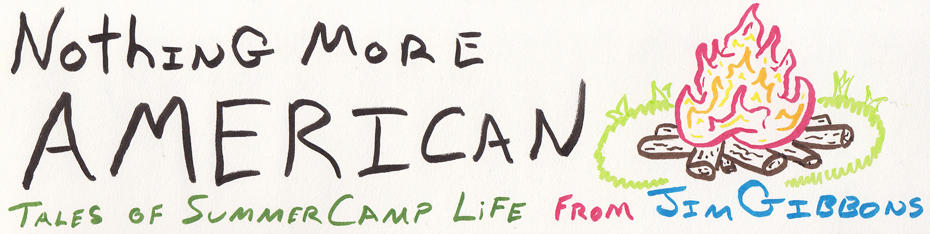 NothING MORE
AMERICAN
TALES OF SUMMER CAMP LIFE FROM JIM GIBBONS